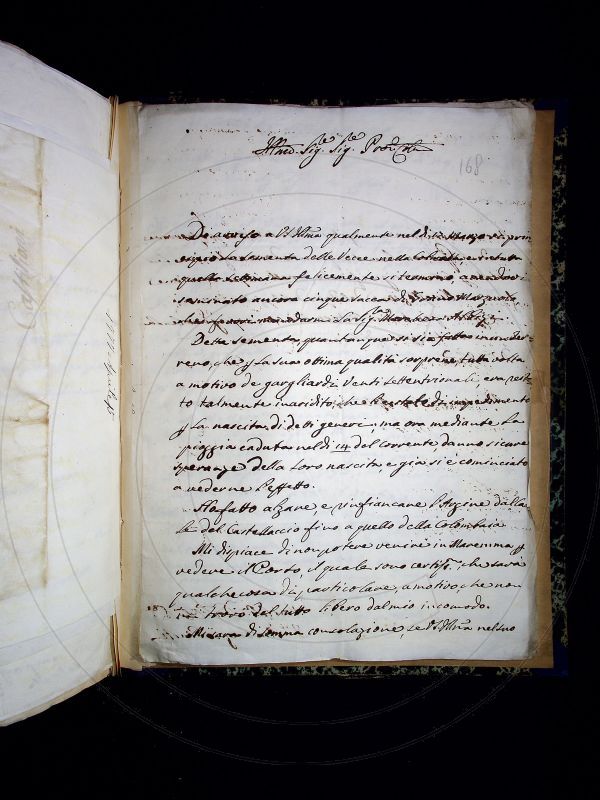 Illmo Sig.re Sig.re Pron Colmo
168
Do avviso a VS Illma qualmente nel di Marzo si prin
cipiò la sementa delle Vecce nella e in tutta
quella settimana felicemente si terminò, avendovi
seminato ancora cinque sacca di Grano Marzuolo
che si favorì mandarmi la Sig.ra Marchesa
Detta sementa, quantunque si sia fatta in un Ter-
reno, che p la sua ottima qualità sorprende, tutta volta
a motivo de gargliardi Venti settentrionali, era resta
to talmente inaridito, che è restato d'impedimento
p la nascita di detti generi, ma ora mediante la
pioggia caduta nel dì 14 del corrente, danno sicure
speranze della loro nascita, e già si è cominciato
a vederne l'effetto.
Ho fatto alzare, e rinfiancare l'Argine dalla
le del Castellaccio fino a quello della Colombaia
Mi dispiace di non potere venire in Maremma p
vedere il Corso, il quale sono certiss.o che sarà
qualche cosa di particolare, a motivo, che non
mi trovo del tutto libero dal mio incomodo.
Mi sarà di somma consolazione, se VS Illma nel suo